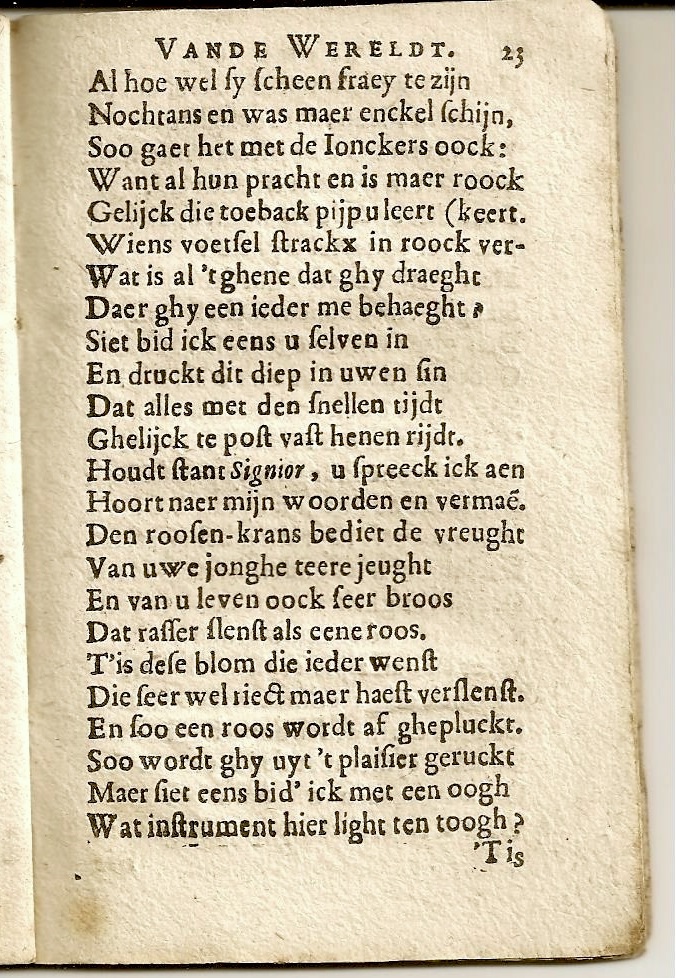 VANDE WERELDT. 23
Al hoe wel ſy ſcheen fraey te zijn
Nochtans en was maer enckel ſchijn,
Soo gaet het met de Ionckers oock:
Want al hun pracht en is maer roock
Gelijck die toeback pijp u leert (keert.
Wiens voetſel ſtrackx in roock ver-
Wat is al 't ghene dat ghy draeght
Daer ghy een ieder me behaeght?
Siet bid ick eens u ſelven in
En druckt dit diep in uwen ſin
Dat alles met den ſnellen tijdt
Ghelijck te poſt vaſt henen rijdt.
Houdt ſtant Signior, u ſpreeck ick aen
Hoort naer mijn woorden en vermaẽ.
Den rooſen-krans bediet de vreught
Van uwe jonghe teere jeught
En van u leven oock ſeer broos
Dat raſſer ſlenſt als eene roos.
T'is deſe blom die ieder wenſt
Die ſeer wel rieckt maer haeſt verſlenſt.
En ſoo een roos wordt af ghepluckt.
Soo wordt ghy uyt 't plaiſier geruckt
Maer ſiet eens bid' ick met een oogh
Wat inſtrument hier light ten toogh?
'Tis